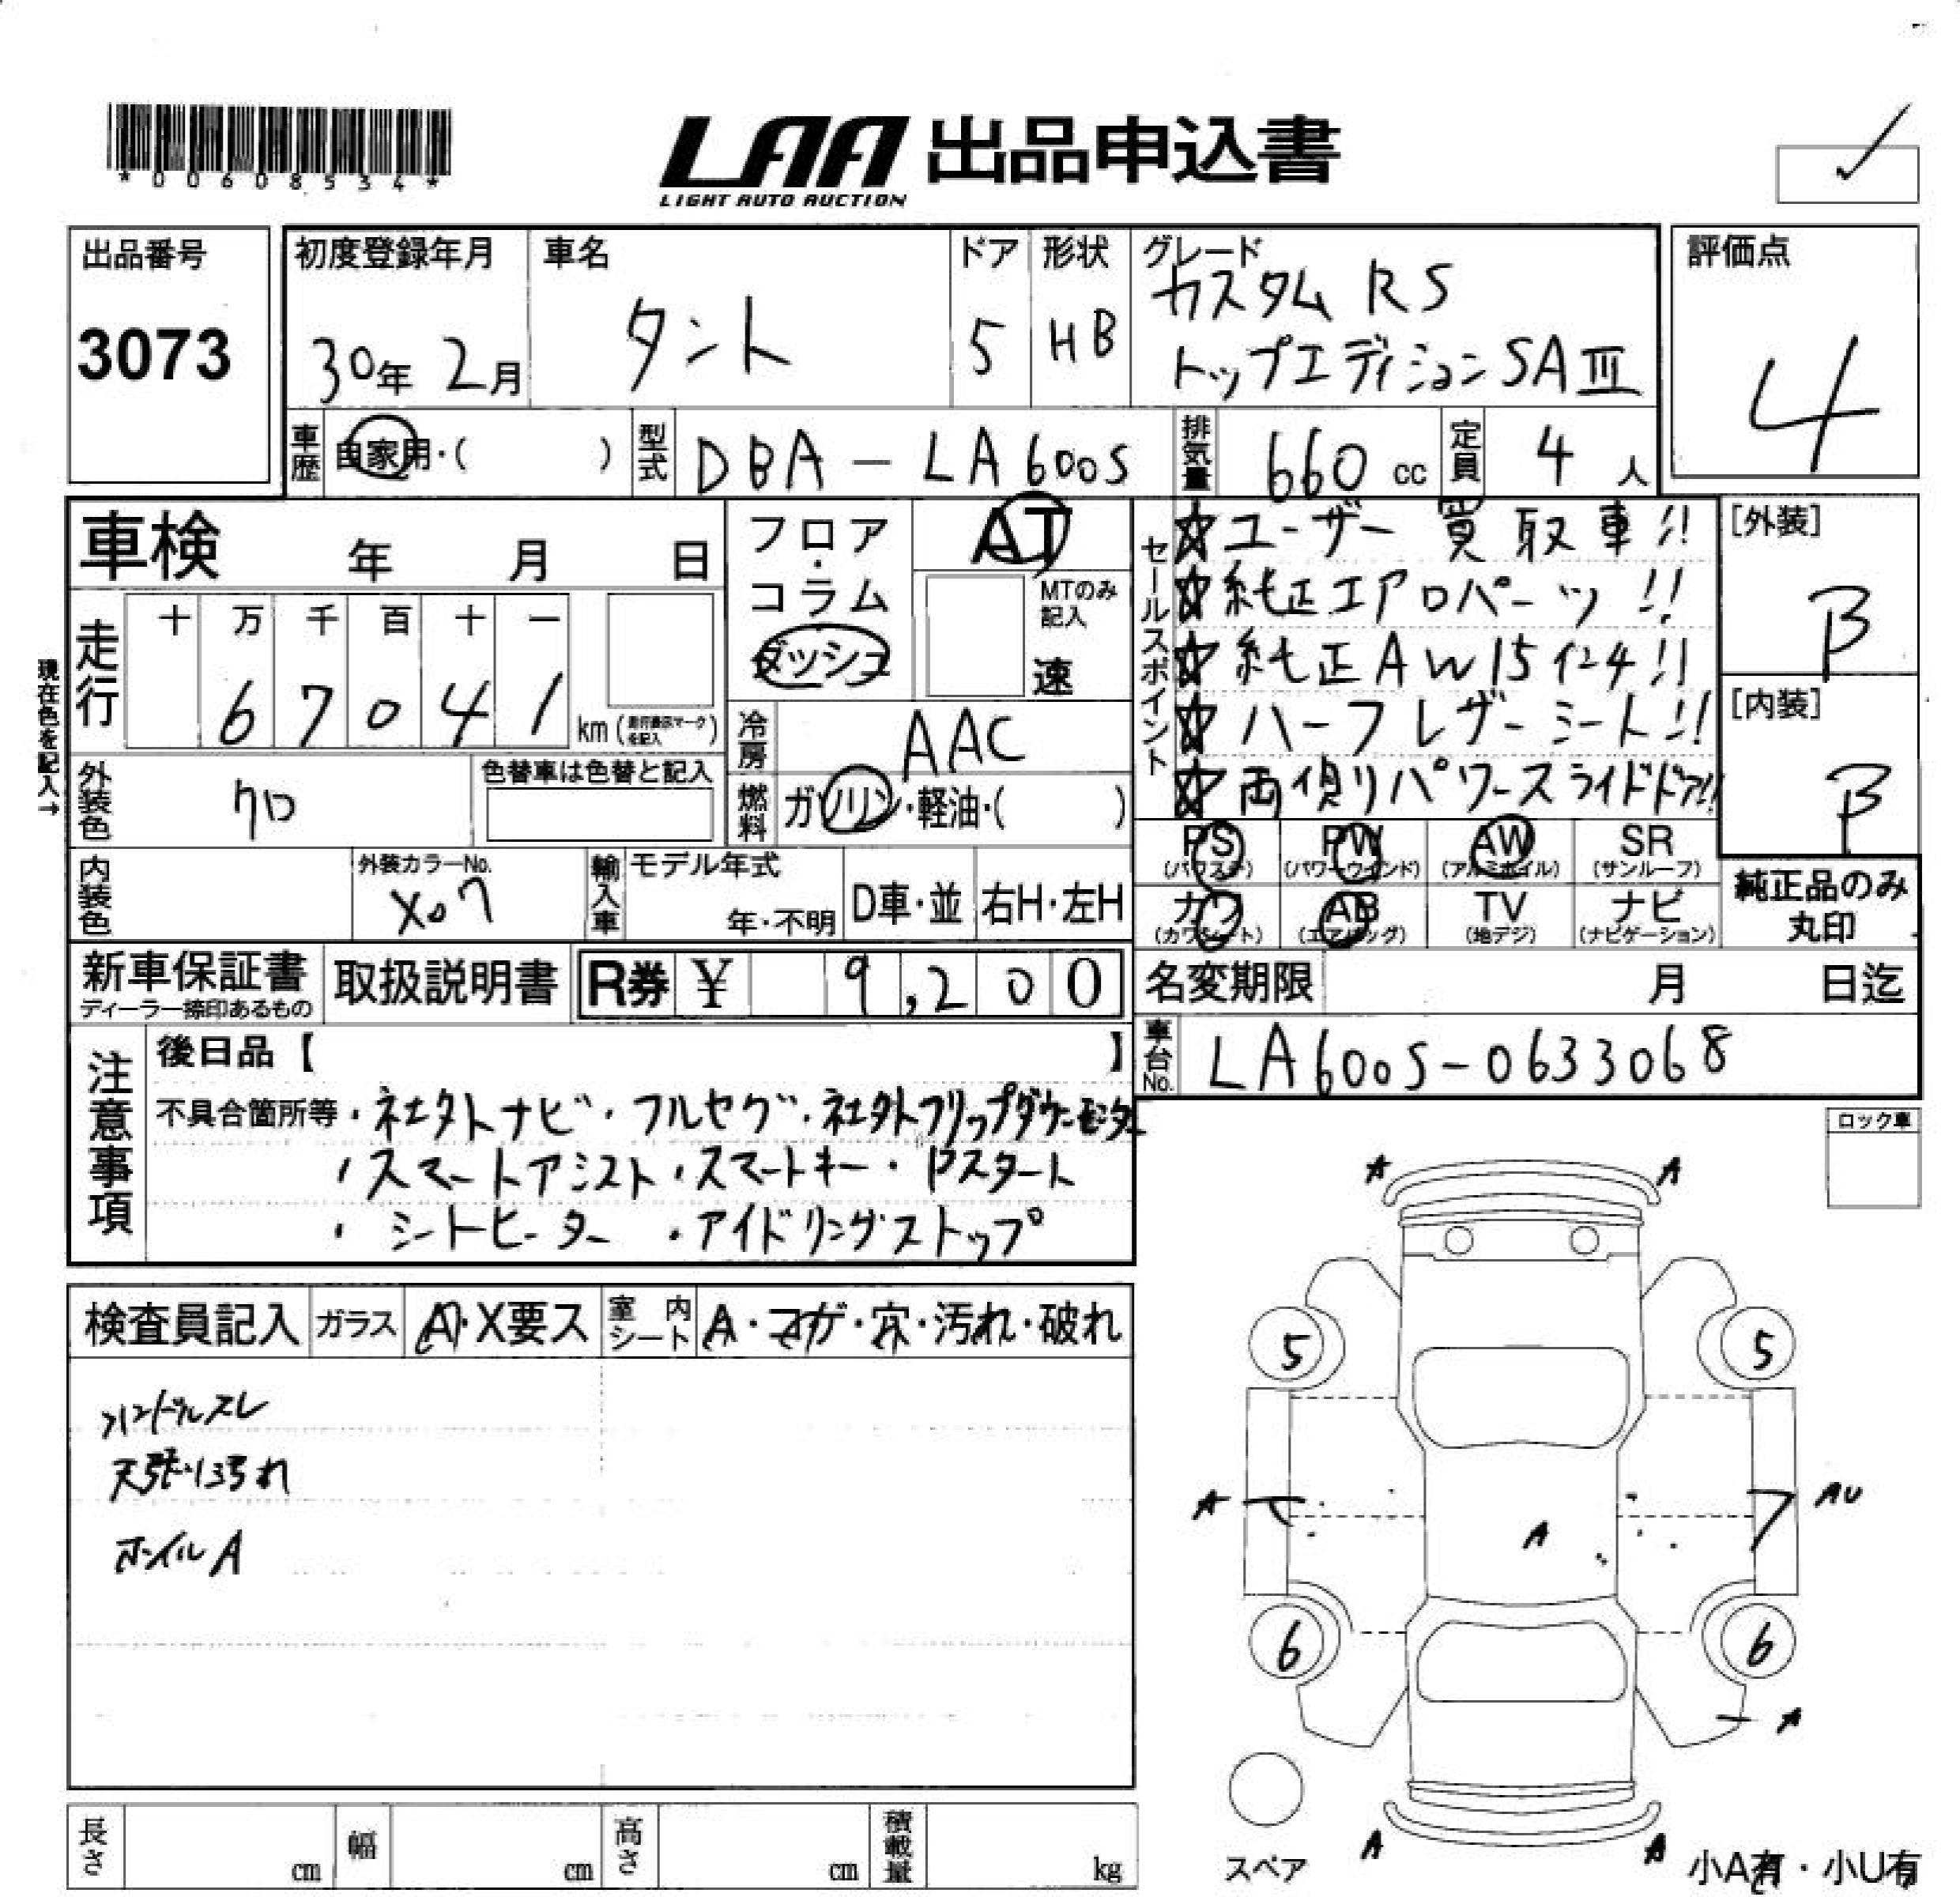 *00608534*
LAA 出品申込書
LIGHT AUTO AUCTION
出品番号
3073
初度登録年月
30年 2月
車名
タント
ドア
5
形状
HB
グレード
カスタム RS
トップエディションSAⅢ
評価点
4
車歴
自家用・( )
型式
DBA-LA600S
排気量
660 cc
定員
4 人
車検 年 月 日
フロア・コラム
ダッシュ
AT
MTのみ記入
速
セールスポイント
☆ユーザー買取車!!
☆純正エアロパーツ!!
☆純正AW15インチ!!
☆ハーフレザーシート!!
☆両側パワースライドドア!!
[外装]
B
[内装]
B
現在色を記入→
走行
十 万 千 百 十 一
6 7 0 4 1
km (走行表示マークを記入)
冷房
AAC
外装色
クロ
色替車は色替と記入
燃料
ガソリン・軽油・( )
PS (パワステ)
PW (パワーウインド)
AW (アルミホイル)
SR (サンルーフ)
カワ (カワシート)
AB (エアバッグ)
TV (地デジ)
ナビ (ナビゲーション)
純正品のみ
丸印
内装色
外装カラーNo.
X07
輸入車
モデル年式
年・不明
D車・並
右H・左H
新車保証書
ディーラー捺印あるもの
取扱説明書
R券 ¥ 9,200
名変期限 月 日迄
車台No.
LA600S-0633068
注意事項
後日品【 】
不具合箇所等・社外ナビ・フルセグ・社外フリップダウンモニター
・スマートアシスト・スマートキー・Pスタート
・シートヒーター ・アイドリングストップ
ロック車
検査員記入
ガラス
A・X要ス
室内シート
A・コガ・穴・汚れ・破れ
ハンドルスレ
天張り汚れ
ホイルA
A A
5 5
A AU
A
6 6
A
A A
スペア
小A有・小U有
長さ cm
幅 cm
高さ cm
積載量 kg